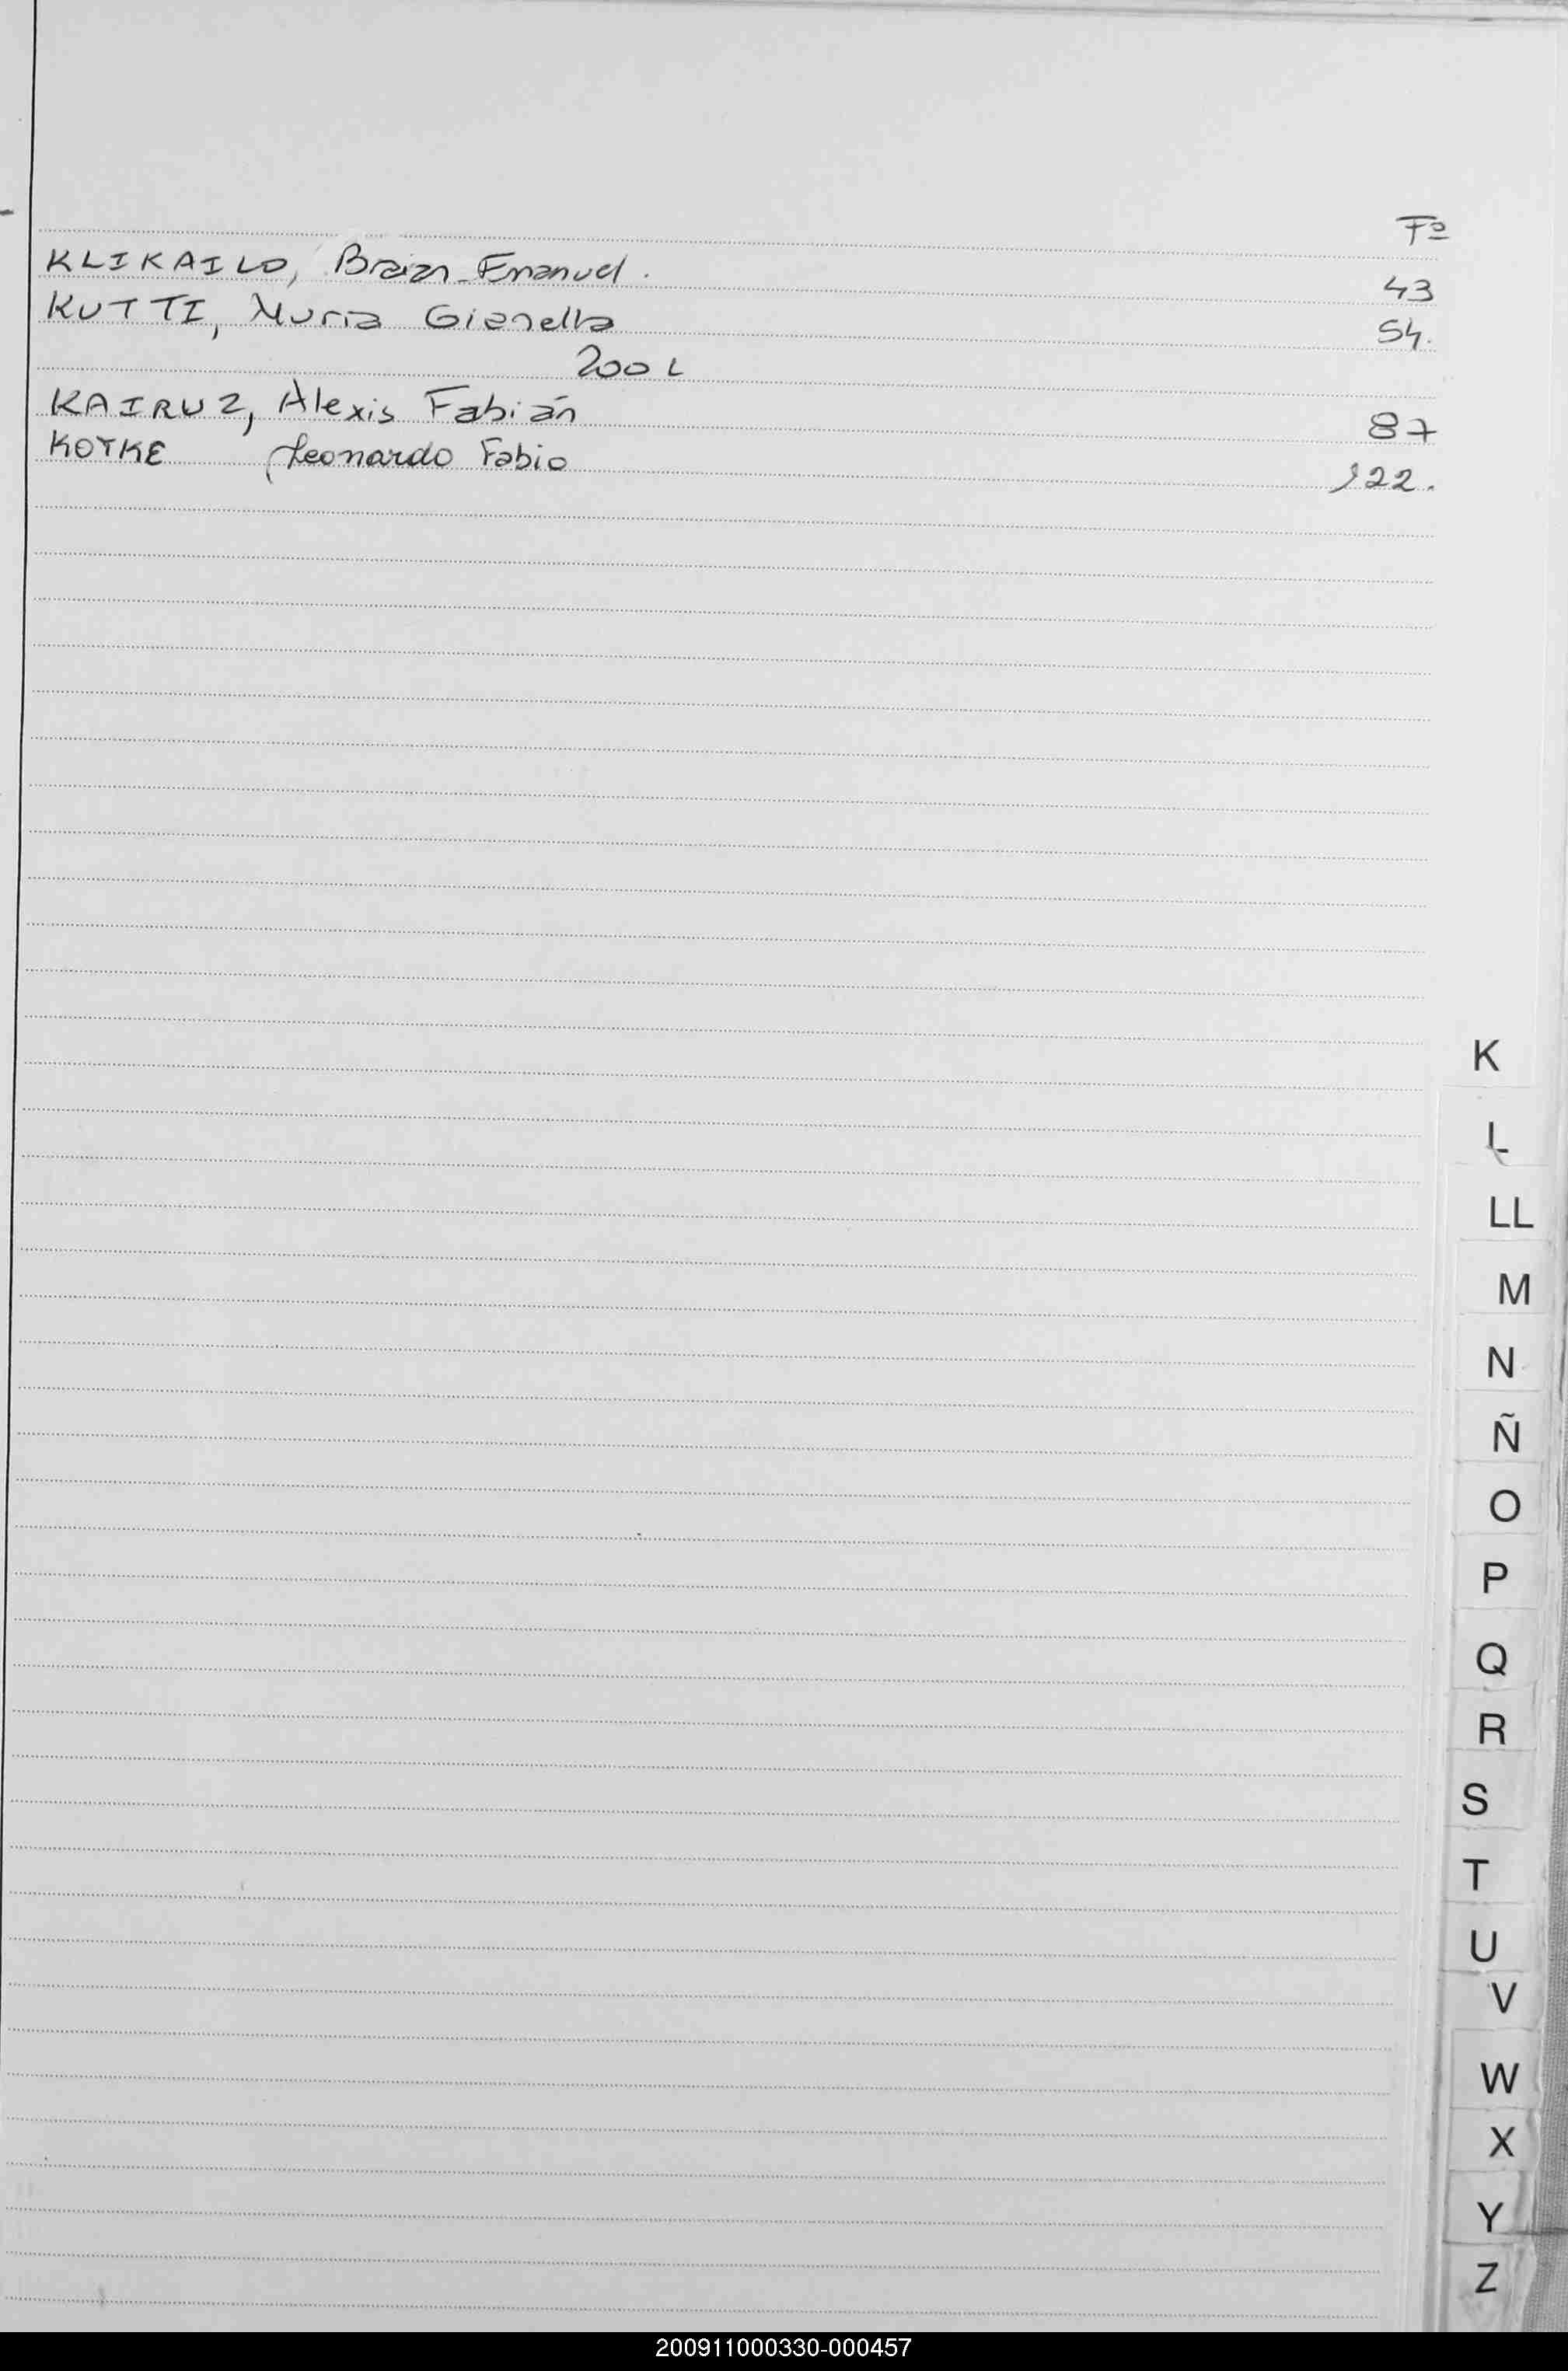 Fº
KLIKAILO, Braian Emanuel. 43
KUTTI, Nuria Gianella 54.
200L
KAIRUZ, Alexis Fabián 87
KOTKE Leonardo Fabio 122.
K
L
LL
M
N
Ñ
O
P
Q
R
S
T
U
V
W
X
Y
Z
200911000330-000457